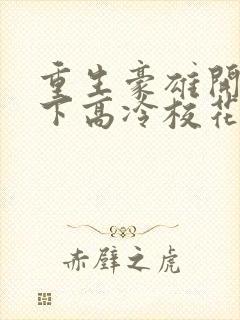 重生豪雄開
下高冷校花
赤壁之虎